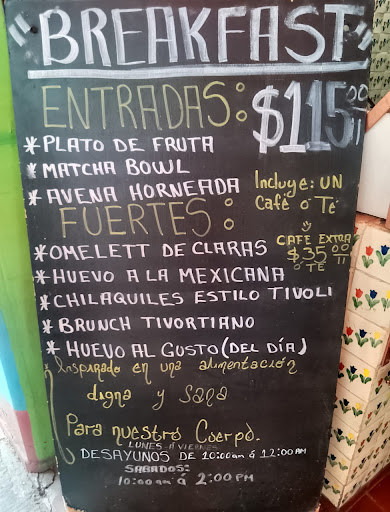 "BREAKFAST"
ENTRADAS: $115.00
* PLATO DE FRUTA
* MATCHA BOWL
* AVENA HORNEADA
Incluye: UN
Café o Té
FUERTES:
* OMELETT DE CLARAS
CAFE EXTRA
$35.00
O TÉ
* HUEVO A LA MEXICANA
* CHILAQUILES ESTILO TIVOLI
* BRUNCH TIVORTIANO
* HUEVO AL GUSTO (DEL DÍA)
Inspirado en una alimentación
digna y sana
Para nuestro Cuerpo.
LUNES A VIERNES
DESAYUNOS DE 10:00am á 12:00AM
SABADOS:
10:00am á 2:00PM